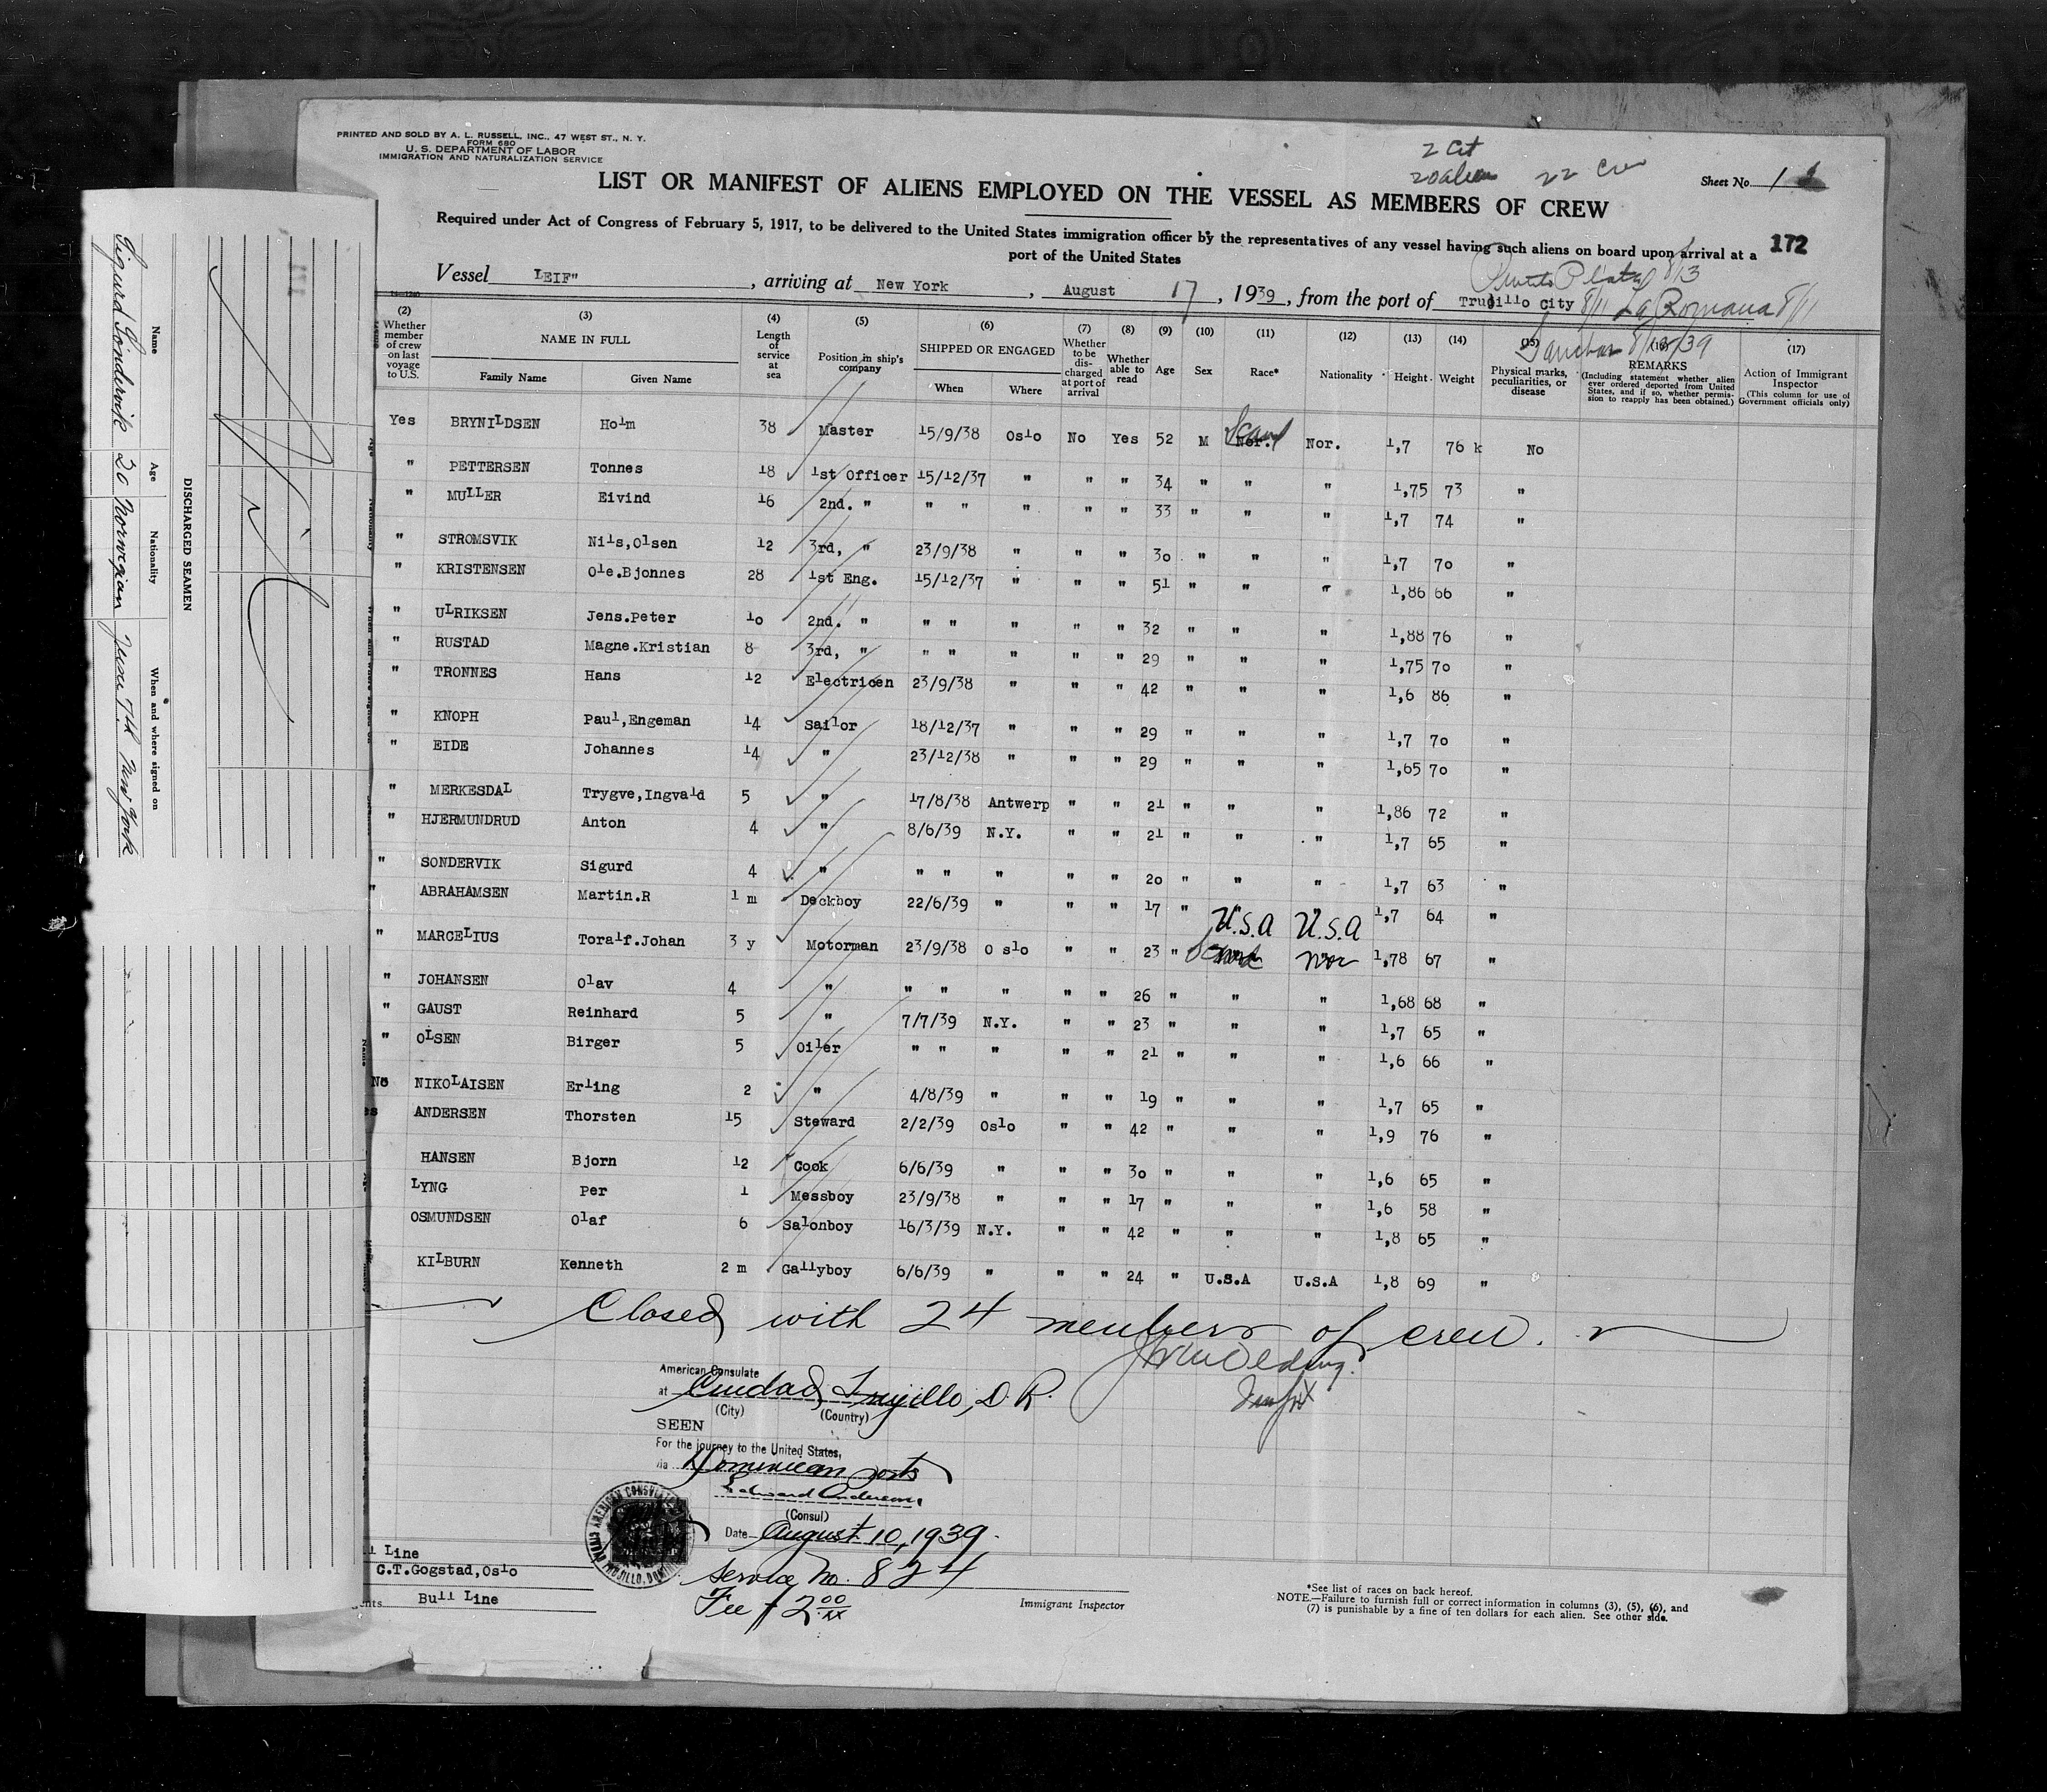 PRINTED AND SOLD BY A. L. RUSSELL, INC., 47 WEST ST., N. Y.
FORM 680
U. S. DEPARTMENT OF LABOR
IMMIGRATION AND NATURALIZATION SERVICE
2 Cit
20 alien 22 Crew
Sheet No. 1
LIST OR MANIFEST OF ALIENS EMPLOYED ON THE VESSEL AS MEMBERS OF CREW
Required under Act of Congress of February 5, 1917, to be delivered to the United States immigration officer by the representatives of any vessel having such aliens on board upon arrival at a
port of the United States
172
Puerto Plata 8/13
Vessel LEIF" , arriving at New York , August 17 , 1939 , from the port of Trujillo City 8/11 La Romana 8/11
Sanchez 8/12/39
(2) Whether member of crew on last voyage to U.S.
(3) NAME IN FULL Family Name Given Name
(4) Length of service at sea
(5) Position in ship's company
(6) SHIPPED OR ENGAGED When Where
(7) Whether to be discharged at port of arrival
(8) Whether able to read
(9) Age
(10) Sex
(11) Race*
(12) Nationality
(13) Height
(14) Weight
(15) Physical marks, peculiarities, or disease
(16) REMARKS (Including statement whether alien ever ordered deported from United States, and if so, whether permission to reapply has been obtained.)
(17) Action of Immigrant Inspector (This column for use of Government officials only)
Yes BRYNILDSEN Holm 38 Master 15/9/38 Oslo No Yes 52 M Scand Nor. Nor. 1,7 76 k No
" PETTERSEN Tonnes 18 1st Officer 15/12/37 " " " 34 " " " 1,75 73 "
" MULLER Eivind 16 2nd. " " " " " " 33 " " " 1,7 74 "
" STROMSVIK Nils,Olsen 12 3rd, " 23/9/38 " " " 30 " " " 1,7 70 "
" KRISTENSEN Ole.Bjonnes 28 1st Eng. 15/12/37 " " " 51 " " " 1,86 66 "
" ULRIKSEN Jens.Peter 10 2nd. " " " " " " 32 " " " 1,88 76 "
" RUSTAD Magne.Kristian 8 3rd, " " " " " " 29 " " " 1,75 70 "
" TRONNES Hans 12 Electricen 23/9/38 " " " 42 " " " 1,6 86 "
" KNOPH Paul,Engeman 14 Sailor 18/12/37 " " " 29 " " " 1,7 70 "
" EIDE Johannes 14 " 23/12/38 " " " 29 " " " 1,65 70 "
" MERKESDAL Trygve,Ingvald 5 " 17/8/38 Antwerp " " 21 " " " 1,86 72 "
" HJERMUNDRUD Anton 4 " 8/6/39 N.Y. " " 21 " " " 1,7 65 "
" SONDERVIK Sigurd 4 " " " " " " 20 " " " 1,7 63 "
" ABRAHAMSEN Martin.R 1 m Deckboy 22/6/39 " " " 17 " U.S.A U.S.A 1,7 64 "
" MARCELIUS Toralf.Johan 3 y Motorman 23/9/38 O slo " " 23 " Scand Nor 1,78 67 "
" JOHANSEN Olav 4 " " " " " " 26 " " " 1,68 68 "
" GAUST Reinhard 5 " 7/7/39 N.Y. " " 23 " " " 1,7 65 "
" OLSEN Birger 5 Oiler " " " " " 21 " " " 1,6 66 "
No NIKOLAISEN Erling 2 " 4/8/39 " " " 19 " " " 1,7 65 "
es ANDERSEN Thorsten 15 Steward 2/2/39 Oslo " " 42 " " " 1,9 76 "
HANSEN Bjorn 12 Cook 6/6/39 " " " 30 " " " 1,6 65 "
LYNG Per 1 Messboy 23/9/38 " " " 17 " " " 1,6 58 "
OSMUNDSEN Olaf 6 Salonboy 16/3/39 N.Y. " " 42 " " " 1,8 65 "
KILBURN Kenneth 2 m Gallyboy 6/6/39 " " " 24 " U.S.A U.S.A 1,8 69 "
Closed with 24 members of crew.
American Consulate
at Ciudad Trujillo, D. R.
(City) (Country)
SEEN
For the journey to the United States,
via Dominican ports
Edward Anderson
(Consul)
Date August 10, 1939.
Service No. 824
Fee $ 2 00/xx
ll Line
C.T.Gogstad,Oslo
nts Bull Line
Immigrant Inspector
*See list of races on back hereof.
NOTE.—Failure to furnish full or correct information in columns (3), (5), (6), and
(7) is punishable by a fine of ten dollars for each alien. See other side.
DISCHARGED SEAMEN
Name Age Nationality When and where signed on
Sigurd Söndervik 20 Norwegian June 7th New York